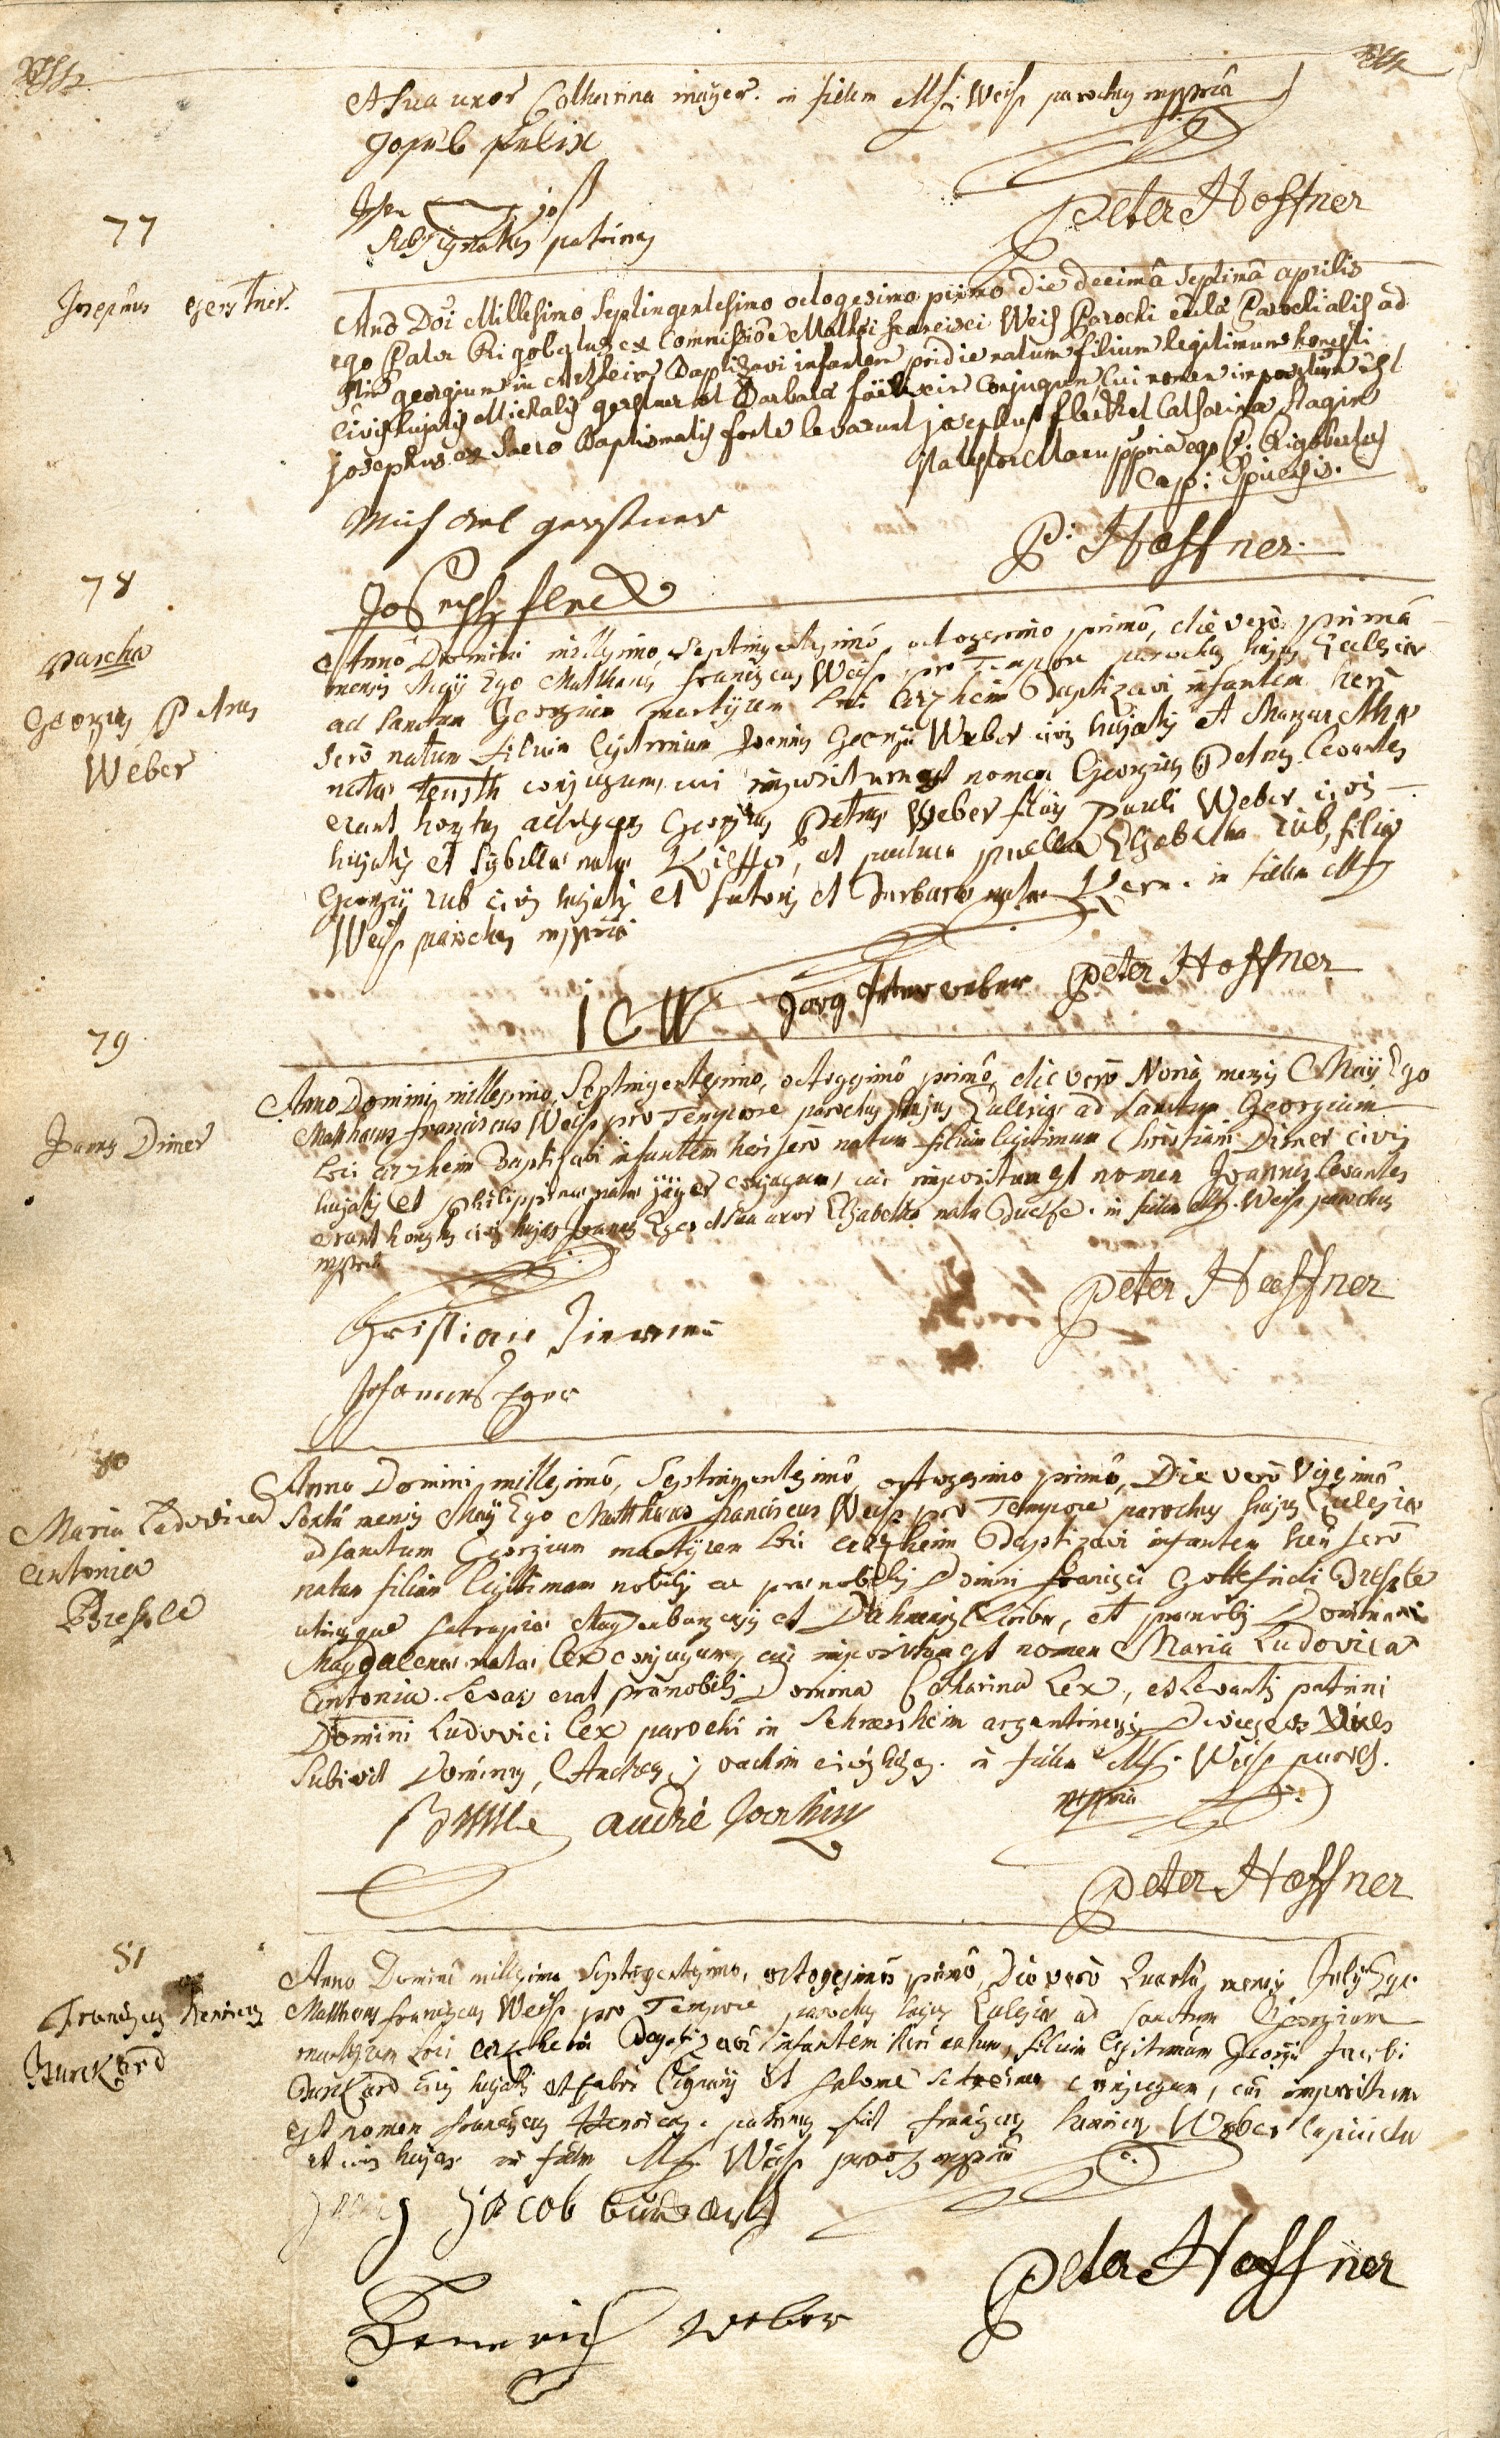 et sua uxor Catharina mayer. in fidem Mf: Weis parochus mppriâ
Jopüb felix
jost
Subsignatus patrinus
Peter Hoffner
77
Josephus gerstner.
Anô Doi Millesimo Septingentesimo octogesimo primo die decimâ septimâ aprilis
ego Pater Rigobertus ex Commissiôe Mathæi francisci Weis Parochi Parochialis ad
georgium in artzheim Baptizavi infantem pridie natum filium legitimum honesti
civis hujatis Michalis gerstner et Barbara conjugum cui nomen impositum est
josephus ex sacro Baptismatis fonte levarunt josephus fleck et Catharina Nagin
ego P: Rigobertus
Cap:
Michael gerstner
P: Hoffner.
Joseph fleck
78
pascha
Georgius Petrus
Weber
Annô Domini millesimo, septingentesimô, octogesimo primô, die verò primâ
mensis Maÿ Ego Matthæus franciscus Weis pro Tempore parochus hujus Ecclesiæ
ad sanctum Georgium martÿrem loci arzheim Baptizavi infantem heri
serò natum filium legitimum Joannis Georgii Weber civis hujatis et Margarethæ
natæ conjugum, cui impositum est nomen Georgius Petrus levantes
erant honestus adolescens Georgius Petrus Weber filius pauli Weber civis
hujatis et Sybillæ natæ Kieffer, et pudica puella Elisabetha rub, filia
Georgii rub civis hujatis et sutoris et Barbaræ natæ Kern. in fidem Mf
Weis parochus mppriâ
I G W Jorg Peter weber Peter Hoffner
79
Joannes Dimer
Anno Domini millesimo, Septingentesimo, octogesimô primô, die verò Nonâ mensis Maÿ Ego
Matthæus franciscus Weis pro Tempore parochus hujus Ecclesiæ ad sanctum Georgium
loci arzheim Baptizavi infantem heri serò natum filium legitimum Christiani Dimer civis
hujatis et philippinæ natæ jäger conjugum, cui impositum est nomen Joannes levantes
erant honestus civis hujas Joannes Eger et sua uxor Elisabetha nata in fidem Mf. Weis parochus
mppriâ
Peter Hoffner
Johannes Eger
80
Maria Ludovica
Antonia
Bresle
Anno Domini millesimô, Septingentesimô, octogesimo primô, Die verò Vigesimâ
Sextâ mensis Maÿ Ego Matthæus franciscus Weis pro Tempore parochus hujus Ecclesiæ
ad sanctum Georgium martÿrem loci arzheim Baptizavi infantem heri serò
natam filiam legitimam nobilis ac prænobilis Domini francisci Bresle
utriusque satrapiæ Magdenburgensis et Dahnensis scribæ, et prænobilis Dominæ
Magdalenæ natæ Lex conjugum, cui impositum est nomen Maria Ludovica
Antonia. Levans erat prænobilis Domina Catharina Lex, et Levantis patrini
Domini Ludovici Lex parochi in argentinensis Diœcesis vices
subivit Dominus, Andreas joachim civis hujas. in fidem Mf. Weis paroch.
mppriâ
andré Joachim
Peter Hoffner
81
Franciscus Henricus
Burckard
Anno Domini millesimo Septingentesimo, octogesimô primô, Die verò Quartâ mensis Julÿ Ego
Matthæus franciscus Weis pro Tempore parochus hujus Ecclesiæ ad sanctum Georgium
martÿrem loci arzheim Baptizavi infantem heri natum, filium legitimum Georgii Jacobi
Burckard civis hujatis et fabri lignarii et Salome conjugum, cui impositum
est nomen franciscus Henricus. patrinus fuit franciscus henricus Weber
et civis hujas in fidem Mf. Weis paroch mppriâ
jacob burckard
Peter Hoffner
Henrich weber